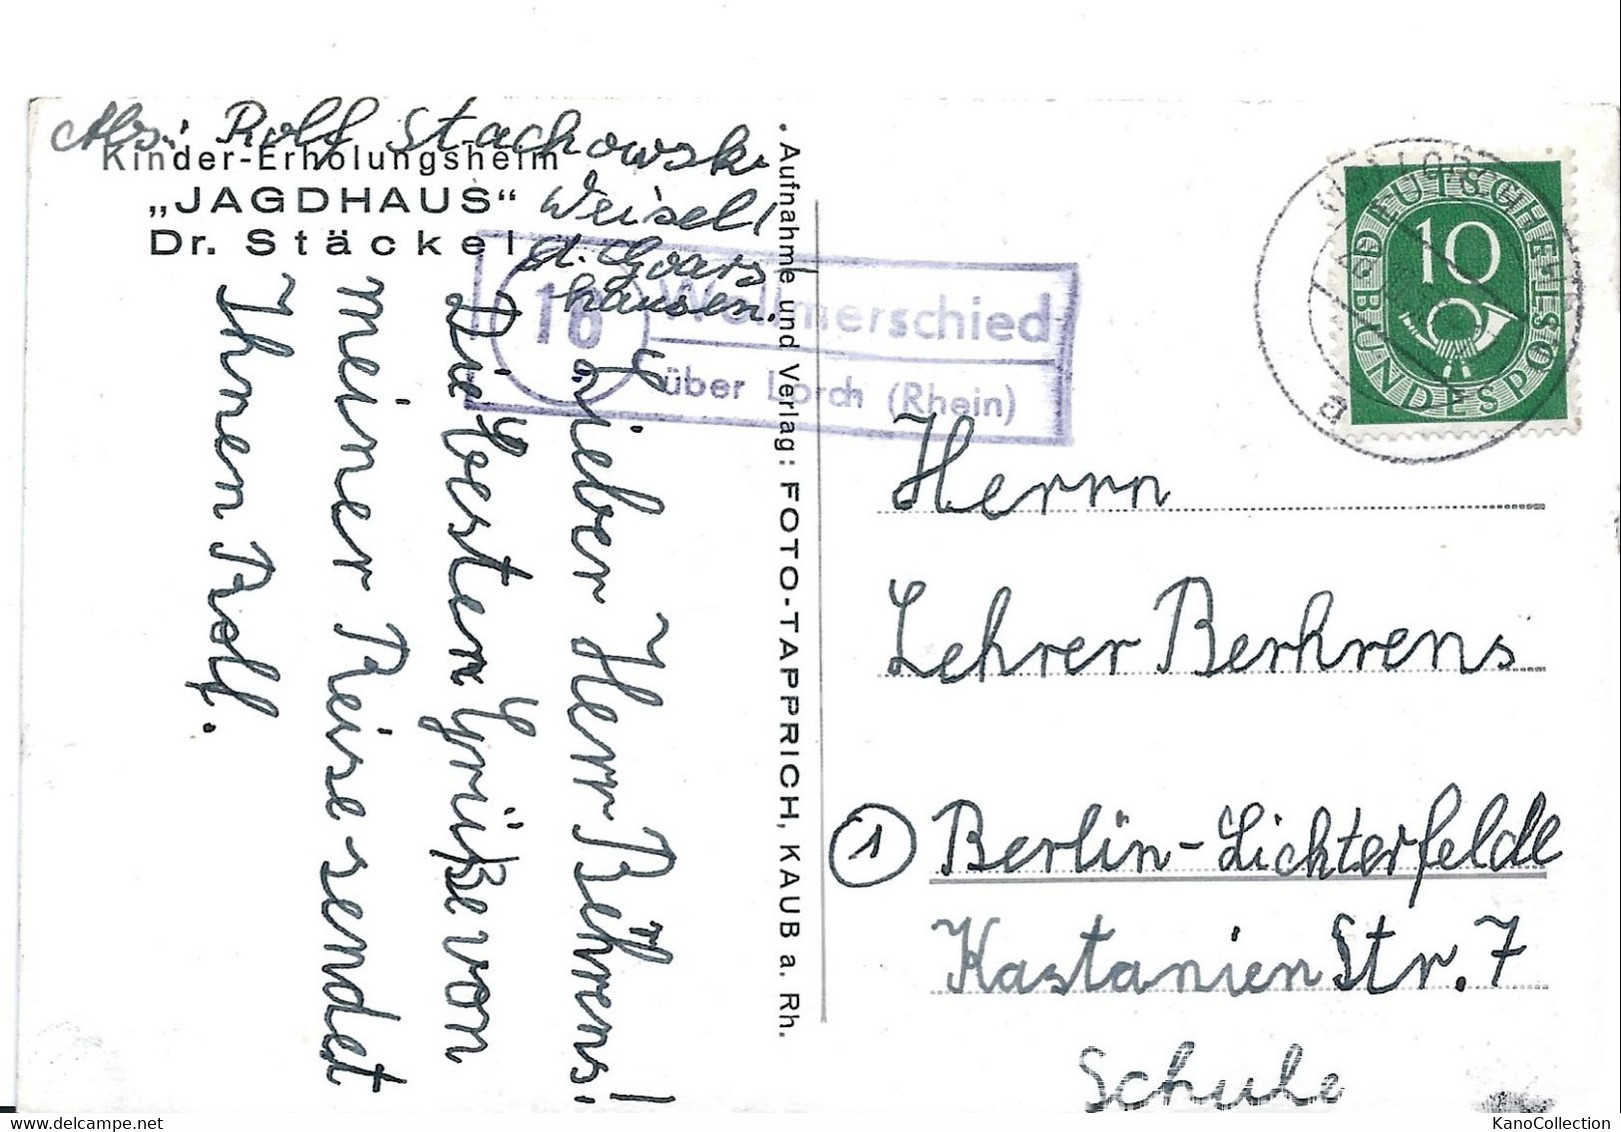 Abs: Rolf Stachowski
Kinder-Erholungsheim
„JAGDHAUS“
Dr. Stäckel
Weisel/
d. Goars
hausen.
16
Wollmerschied
über Lorch (Rhein)
Lieber Herr Böhrens!
Die besten Grüße von
meiner Reise sendet
Ihnen Rolf.
Aufnahme und Verlag: FOTO-TAPPRICH, KAUB a. Rh.
DEUTSCHE BUNDESPOST
10
a
Herrn
Lehrer Berhrens
1
Berlin-Lichterfelde
Kastanien Str. 7
Schule
KanoCollection